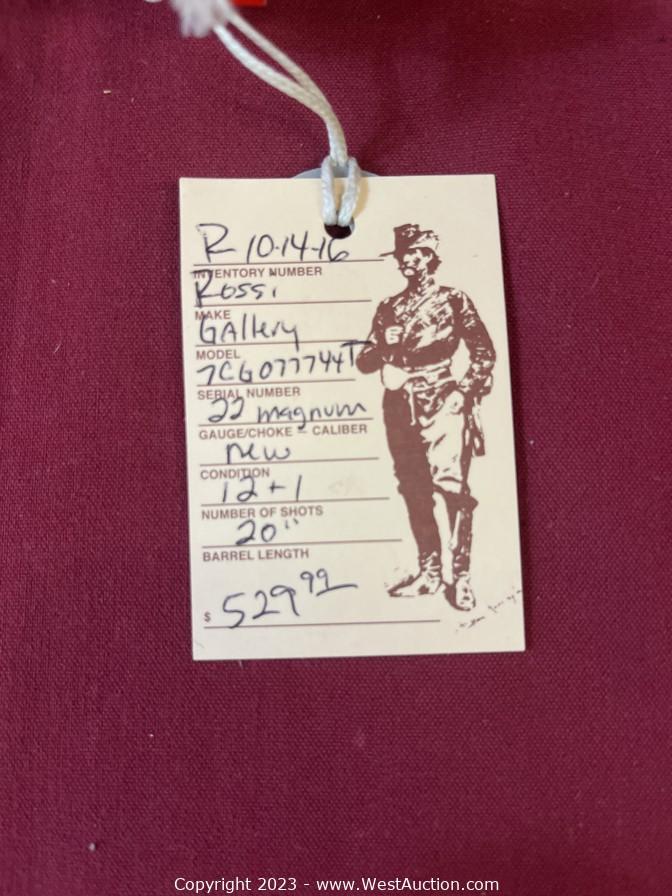 R 10-14-16
INVENTORY NUMBER
Rossi
MAKE
Gallery
MODEL
7CG077744T
SERIAL NUMBER
22 magnum
GAUGE/CHOKE – CALIBER
new
CONDITION
12 + 1
NUMBER OF SHOTS
20"
BARREL LENGTH
$ 529 99
Copyright 2023 - www.WestAuction.com